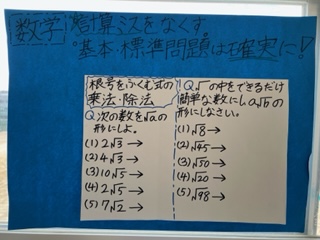 数学 計算ミスをなくす。
基本・標準問題は確実に!
根号をふくむ式の
乗法・除法
Q.次の数を√aの
形にしよ。
(1) 2√3 →
(2) 4√3 →
(3) 10√5 →
(4) 2√5 →
(5) 7√2 →
Q.√の中をできるだけ
簡単な数にし、a√bの
形にしなさい。
(1) √8 →
(2) √45 →
(3) √50 →
(4) √20 →
(5) √98 →